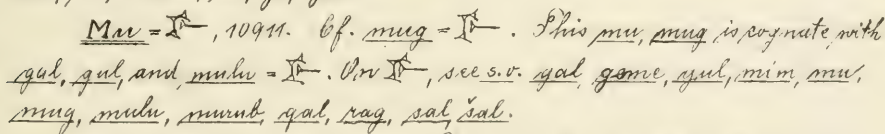 Mu = 𒊩, 10911. Cf. mug = 𒊩. This mu, mug is cognate with
gal, gul, and mulu = 𒊩. On 𒊩, see s.v. gal, geme, gul, mim, mu,
mug, mulu, murub, qal, rag, sal, šal.